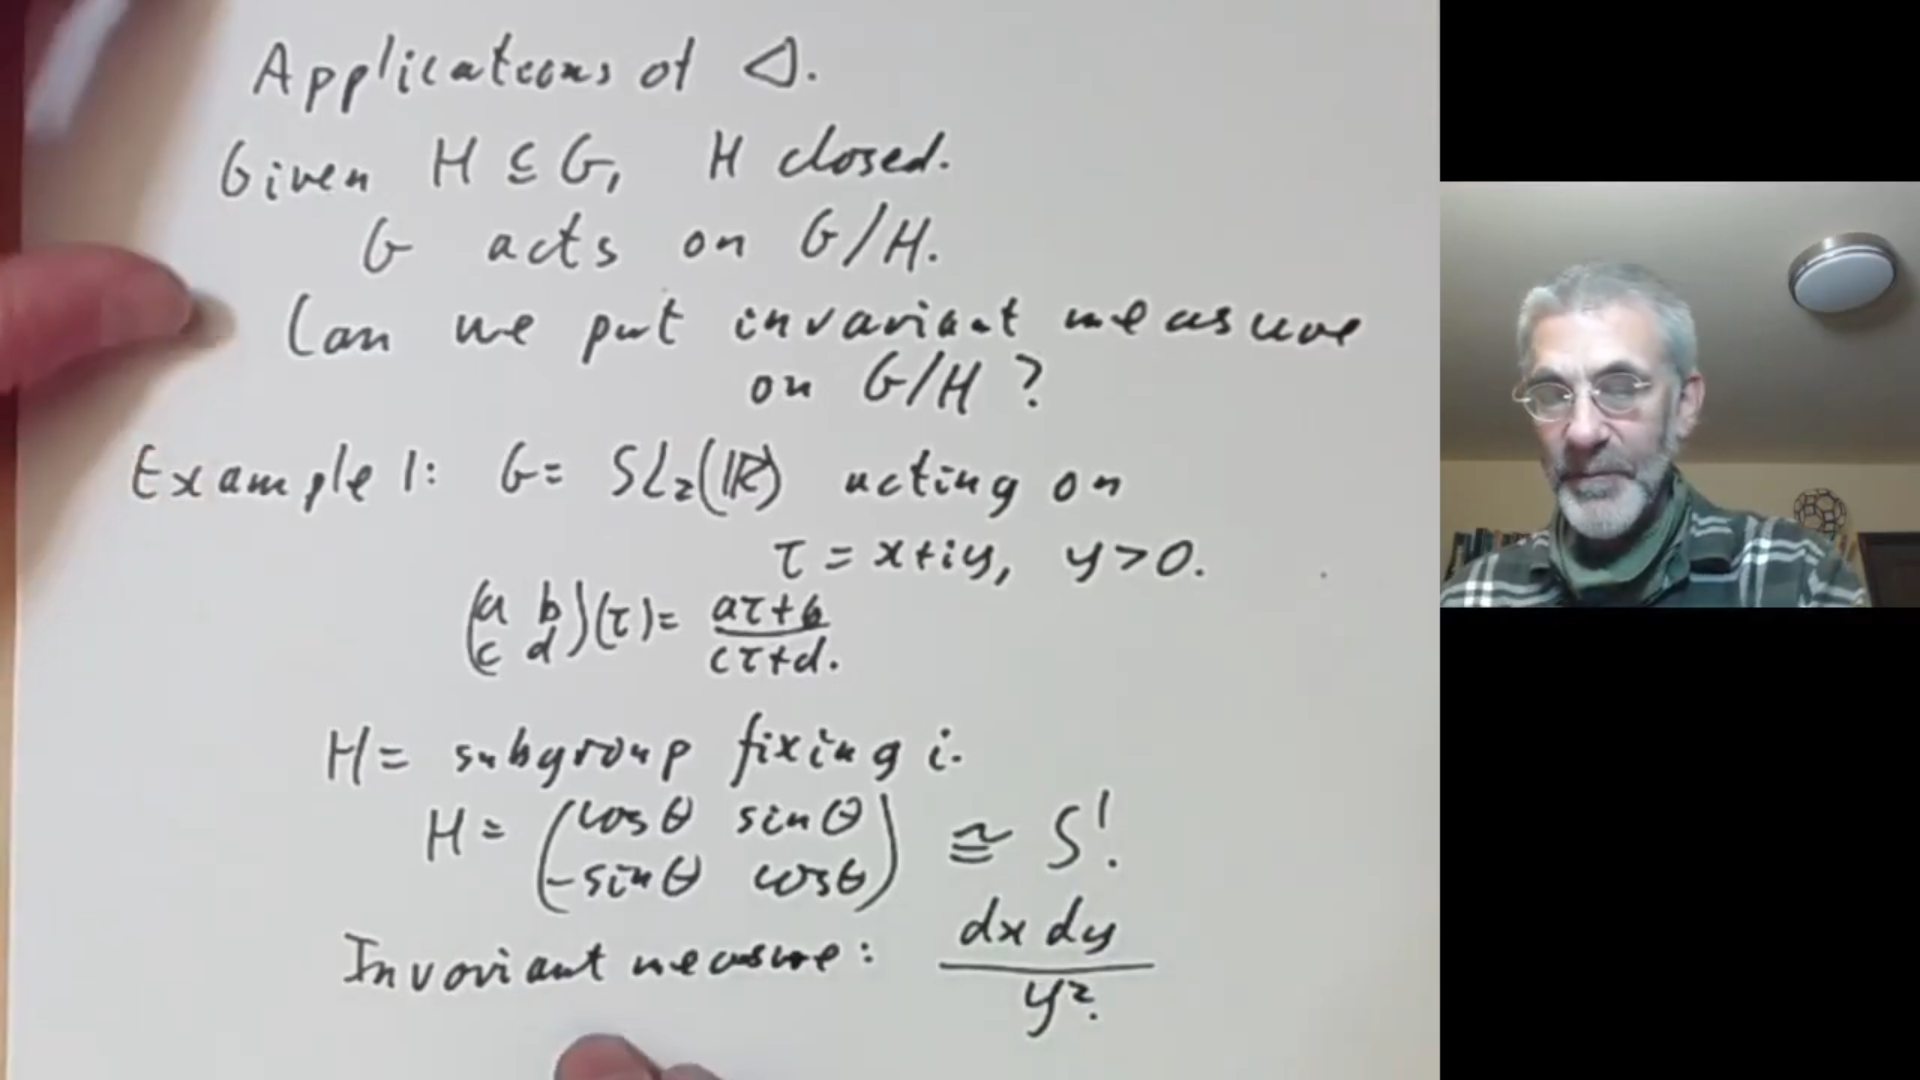 Applications of Δ.
Given H ⊆ G, H closed.
G acts on G/H.
Can we put invariant measure
on G/H ?
Example 1: G = SL₂(ℝ) acting on
τ = x+iy, y>0.
(a b
c d)(τ) = (aτ+b)/(cτ+d).
H = subgroup fixing i.
H = (cosθ sinθ
-sinθ cosθ) ≅ S¹.
Invariant measure: dx dy / y².